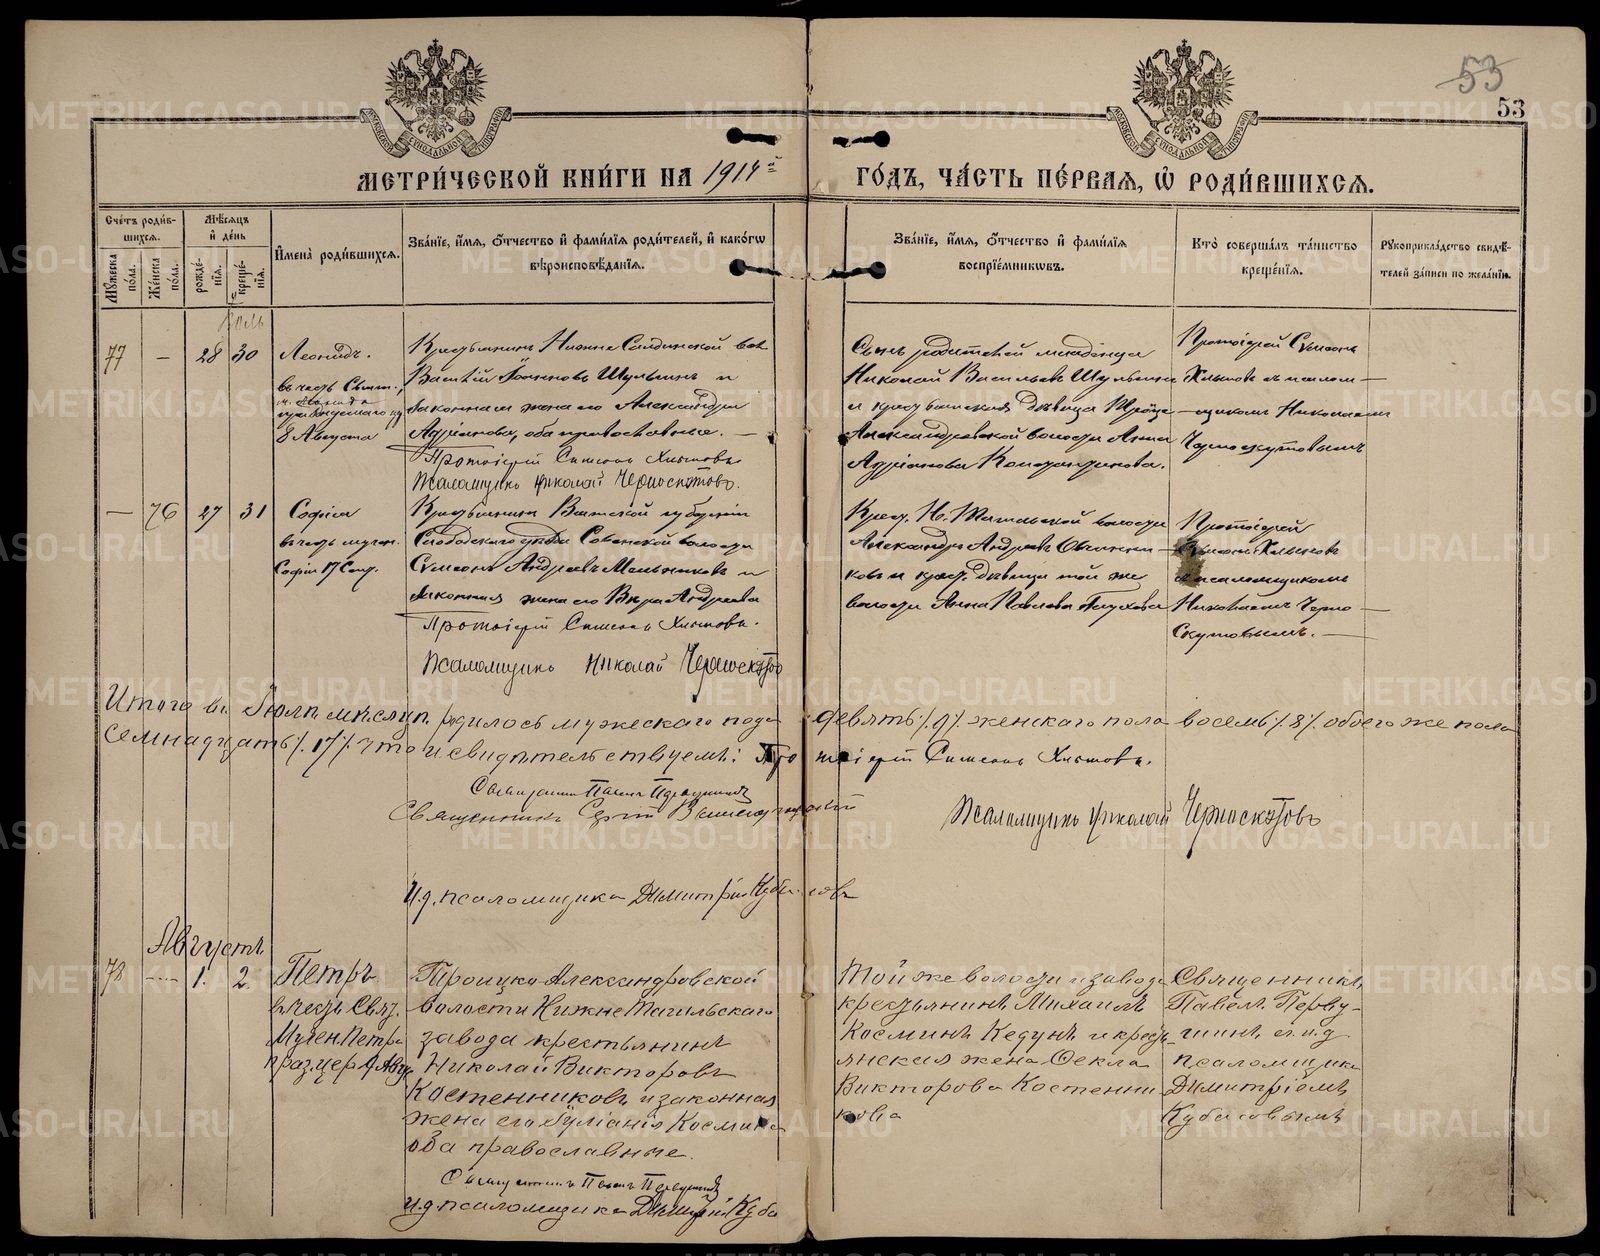 53
53
МОСКОВСКОЙ СѴНОДАЛЬНОЙ ТИПОГРАФІИ
МОСКОВСКОЙ СѴНОДАЛЬНОЙ ТИПОГРАФІИ
МЕТРИ́ЧЕСКОЙ КНИ́ГИ НА 1914й
ГО́ДЪ, ЧА́СТЬ ПЕ́РВАЯ, Ѡ РОДИ́ВШИХСЯ.
Сче́тъ роди́в-
шихся.
Мѣ́сяцъ
и де́нь
Мꙋ́жеска по́ла.
Же́нска по́ла.
рожде́нія.
креще́нія.
Имена́ роди́вшихся.
Зва́ніе, и́мя, о́тчество и фами́лія роди́телей, и како́гѡ
вѣроисповѣ́данія.
Зва́ніе, и́мя, о́тчество и фами́лія
воспріе́мникѡвъ.
Кто̀ соверша́лъ та́инство
креще́нія.
Рꙋкоприкла́дство свидѣ́-
телей за́писи по жела́нію.
77 — 28 30
Леонидъ.
въ честь Свят.
8 Августа
Крестьянинъ Нижне Салдинской вол.
Василій Іоанновъ Шульгинъ и
законная жена его Александра
Адріанова, оба православные. —
Протоіерей Симеонъ Хлыновъ
Псаломщикъ Николай Черноскутовъ.
Сынъ родителей младенца
Николай Васильевъ Шульгинъ
и крестьянская дѣвица Троице-
Александровской волости Анна
Адріанова Константинова.
Протоіерей Сумеонъ
Хлыновъ съ псалом-
щикомъ Николаемъ
Черноскутовымъ
— 76 27 31
Софія
въ честь мучен.
Софіи 17 Сент.
Крестьянинъ Вятской губерніи
Слободского уѣзда Совинской волости
Сумеонъ Андреевъ Мельниковъ и
законная жена его Вѣра Андреева
Протоіерей Симеонъ Хлыновъ.
Псаломщикъ Николай Черноскутовъ
Крест. Н. Тагильской волости
Александръ Андреевъ Овчинни-
ковъ и крест. дѣвица той же
волости Анна Павлова Глухова
Протоіерей
Сумеонъ Хлыновъ
съ псаломщикомъ
Николаемъ Черно-
скутовымъ. —
Итого въ Іюлѣ мѣсяцѣ родилось мужескаго пола девять /9/ женскаго пола восемь /8/ обоего же пола
семнадцать /17/. Что и свидѣтельствуемъ: Протоіерей Симеонъ Хлыновъ.
Священникъ Павелъ Первушинъ
Священникъ Сергій
Псаломщикъ Николай Черноскутовъ
И.д. псаломщика Димитрій Кубасовъ
Августъ
78 — 1. 2.
Петръ
въ честь Свят.
Мучен. Петра
Троицко Александровской
волости Нижне Тагильскаго
завода крестьянинъ
Николай Викторовъ
Костенниковъ и законная
жена его Іуліанія Космина
оба православные.
Священникъ Павелъ Первушинъ
И.д. псаломщика Димитрій Куба
Той же волости и завода
крестьянинъ Михаилъ
Косминъ Кедунъ и крест-
янская жена Фекла
Викторова Костенни-
кова
Священникъ
Павелъ Перву-
шинъ съ и.д
псаломщика
Димитріемъ
Кубасовымъ
METRIKI.GASO-URAL.RU